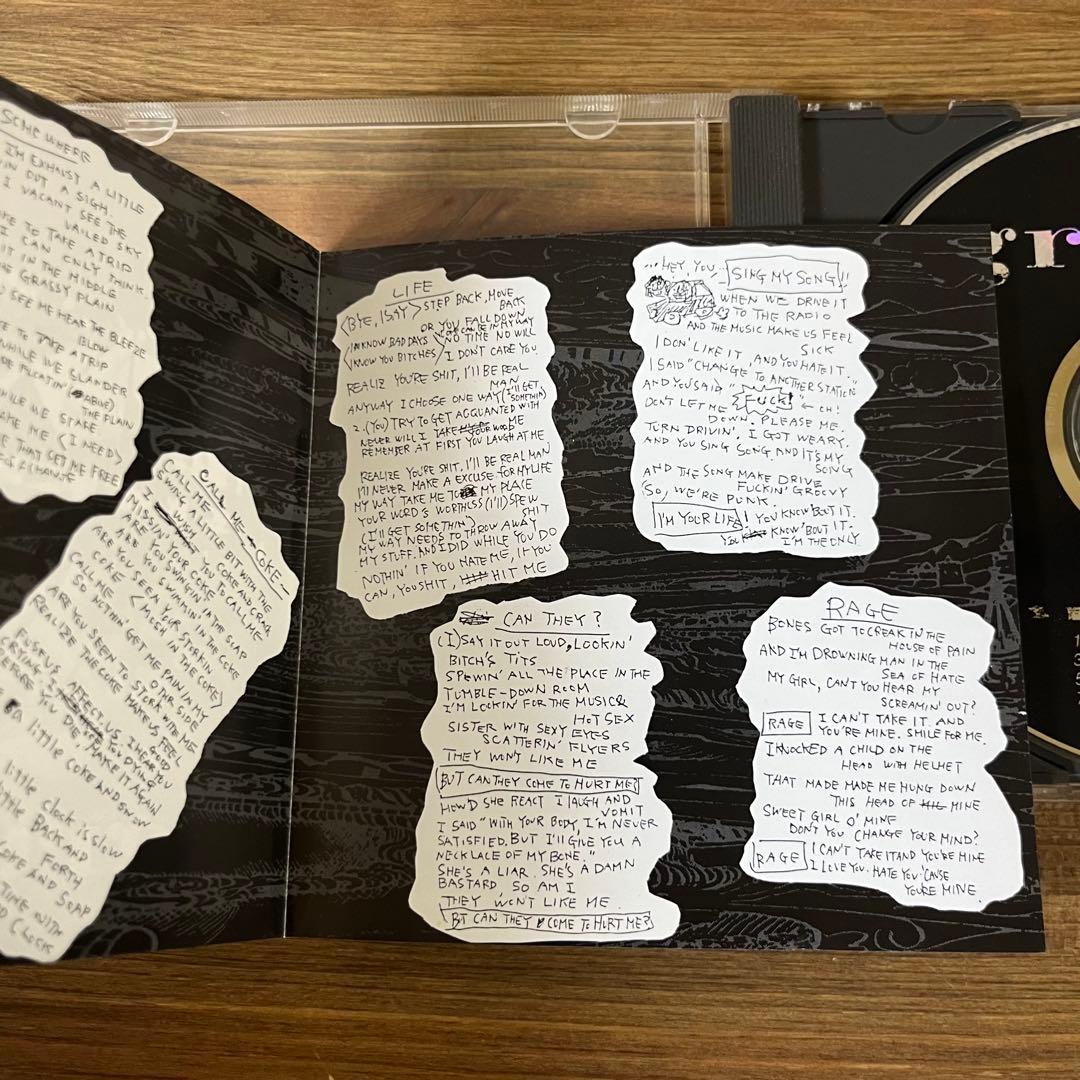 SOME WHERE
I'M EXHAUST A LITTLE
OUT A SIGH.
I VACANT SEE THE
VAILED SKY
TO TAKE A TRIP
I CAN ONLY THINK.
IT IN THE MIDDLE
GRASSY PLAIN
SEE ME HEAR THE BLEEZE
BLOW
TO TAKE A TRIP
WHILE WE SLANDER
FLOATIN' (ABINE)
THE PLAIN
WHILE WE STARE
ME (I NEED)
THAT GET ME FREE
CALL ME COKE
CALL ME A LITTLE BIT WITH THE
SWING A LITTLE COKE AND CRACK
MISSIN' YOUR COKE TO CALL ME
ARE YOU SWINGING IN THE SOAP
ARE YOU SWIMMIN' IN THE COKE
CALL ME
COKE (MUCH IN THE COKE)
ARE YOU SEEN YOUR STORKIN'
SO NOTHIN' GET ME PAIN IN MY
OTHER SIDE
ARE YOU SEEN TO STORK WITH ME
REALIZE THE COKE MAKES ME FEEL
GOOD
little coke and snow
little clock is slow
little BACK AND
FORTH
COKE AND SOAP
TIME WITH
CLOCK
LIFE
(BYE, I SAY) STEP BACK, MOVE
BACK
OR YOU FALL DOWN
'CAUSE IN MY WAY
(I KNOW BAD DAYS NO TIME NO WILL
I KNOW YOU BITCHES) I DON'T CARE YOU
REALIZ YOU'RE SHIT, I'LL BE REAL
MAN
ANYWAY I CHOOSE ONE WAY (I'LL GET
SOMETHIN)
2. (YOU) TRY TO GET ACQUANTED WITH
ME
NEVER WILL I TAKE YOUR WORD
REMEMBER AT FIRST YOU LAUGH AT ME
REALIZE YOU'RE SHIT, I'LL BE REAL MAN
I'LL NEVER MAKE A EXCUSE FOR MY LIFE
MY WAY TAKE ME TO MY PLACE
YOUR WORD'S WORTHLESS (I'LL) SPEW
SHIT
(I'LL GET SOMETHIN)
MY WAY NEEDS TO THROW AWAY
MY STUFF. AND I DID WHILE YOU DO
NOTHIN' IF YOU HATE ME, IF YOU
CAN, YOU SHIT, HIT ME
"HEY, YOU... SING MY SONG"!!
WHEN WE DRIVE IT
TO THE RADIO
AND THE MUSIC MAKE US FEEL
SICK
I DON' LIKE IT, AND YOU HATE IT.
I SAID "CHANGE TO ANOTHER STATION."
AND YOU SAID "Fuck!" ← OH!
DON'T LET ME DOWN. PLEASE ME.
TURN DRIVIN'. I GOT WEARY.
AND YOU SING SONG. AND IT'S MY
SONG
AND THE SONG MAKE DRIVE
FUCKIN' GROOVY
'SO, WE'RE PUNK.
I'M YOUR LIFE! YOU KNOW 'BOUT IT.
YOU KNOW 'BOUT IT.
I'M THE ONLY
CAN THEY?
(I) SAY IT OUT LOUD, LOOKIN'
BITCH'S TITS
SPEWIN' ALL THE PLACE IN THE
TUMBLE-DOWN ROOM
I'M LOOKIN' FOR THE MUSIC &
HOT SEX
SISTER WITH SEXY EYES
SCATTERIN' FLYERS
THEY WON'T LIKE ME
BUT CAN THEY COME TO HURT ME?
HOW'D SHE REACT I LAUGH AND
VOMIT
I SAID "WITH YOUR BODY, I'M NEVER
SATISFIED. BUT I'LL GIVE YOU A
NECKLACE OF MY BONE."
SHE'S A LIAR. SHE'S A DAMN
BASTARD, SO AM I
THEY WON'T LIKE ME
BT CAN THEY COME TO HURT ME?
RAGE
BONES GOT TO CREAK IN THE
HOUSE OF PAIN
AND I'M DROWNING MAN IN THE
SEA OF HATE
MY GIRL, CAN'T YOU HEAR MY
SCREAMIN' OUT?
RAGE I CAN'T TAKE IT. AND
YOU'RE MINE. SMILE FOR ME.
I KNOCKED A CHILD ON THE
HEAD WITH HELMET
THAT MADE MADE ME HUNG DOWN
THIS HEAD OF MINE
SWEET GIRL O' MINE
DON'T YOU CHANGE YOUR MIND?
RAGE I CAN'T TAKE IT AND YOU'RE MINE
I LOVE YOU. HATE YOU 'CAUSE
YOU'RE MINE
gr